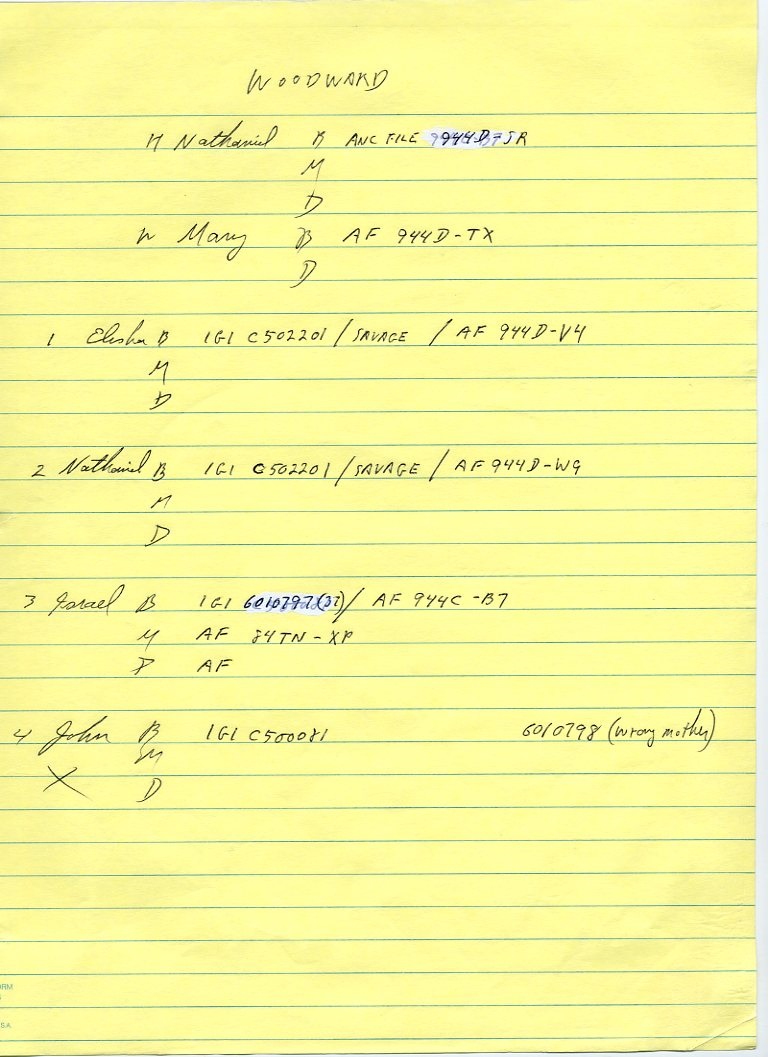 WOODWARD
H Nathaniel B ANC FILE 944D-SR
M
D
W Mary B AF 944D-TX
D
1 Elisha B IGI C502201 / SAVAGE / AF 944D-V4
M
D
2 Nathaniel B IGI C502201 / SAVAGE / AF 944D-W9
M
D
3 Israel B IGI 6010797(37) / AF 944C-B7
M AF 84TN-XP
D AF
4 John B IGI C500081 6010798 (wrong mother)
M
X D
ORM
S.A.